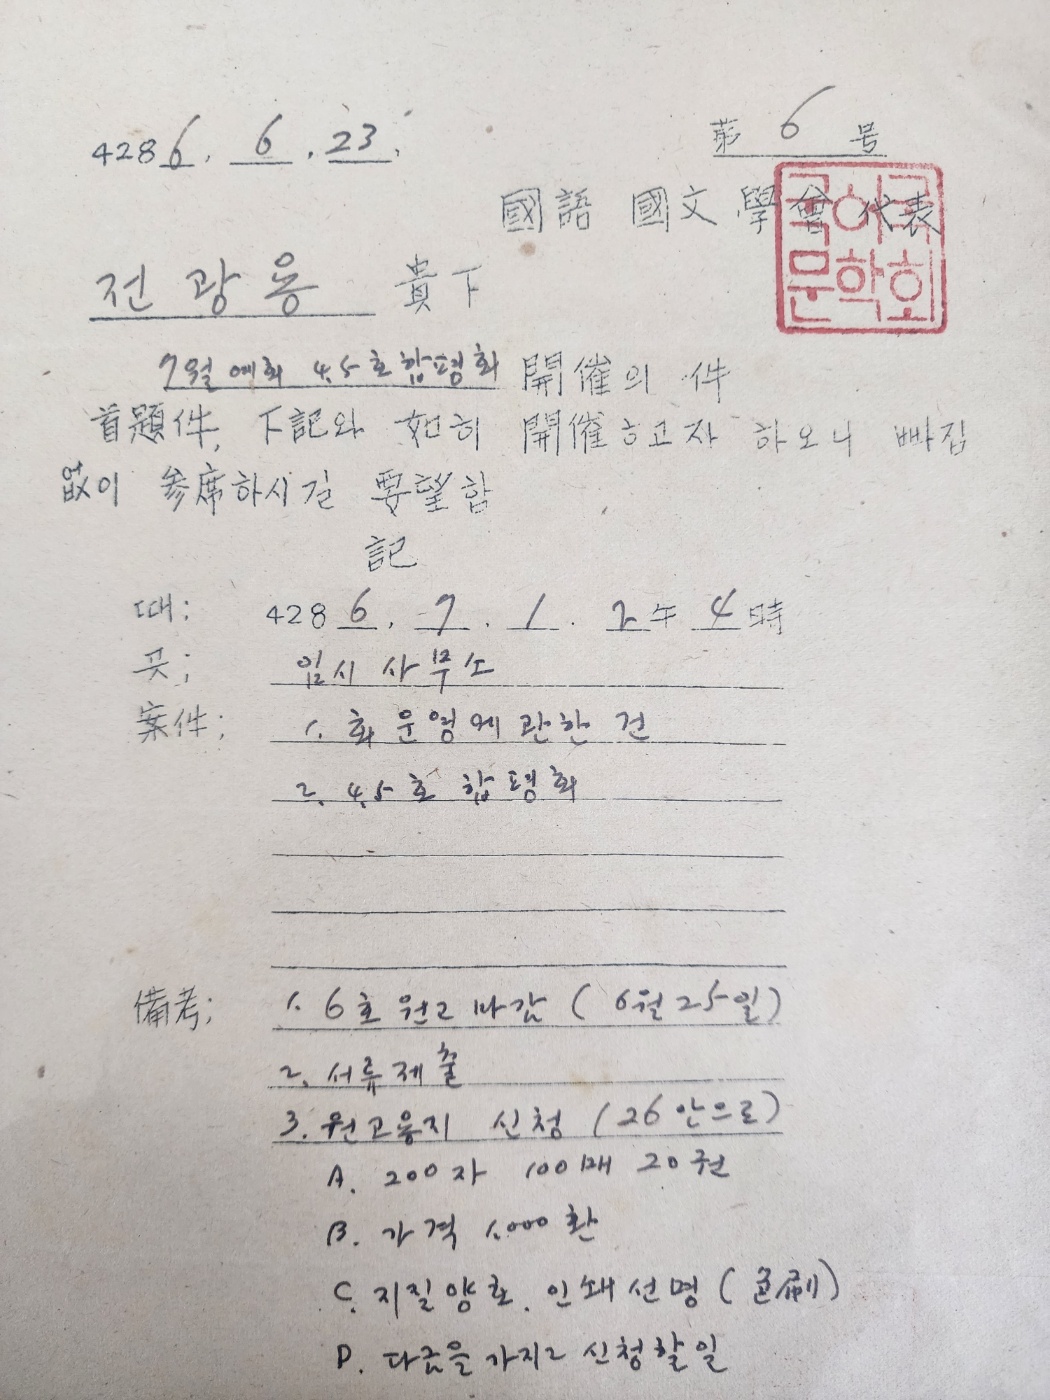 4286. 6. 23.
第 6 号
國語 國文學會 代表
국어국
문학회
전광용 貴下
7월 예회 4.5호 합평회 開催의 件
首題件, 下記와 如히 開催하고자 하오니 빠짐
없이 參席하시길 要望함
記
때: 4286. 7. 1. 下午 4時
곳; 임시 사무소
案件; 1. 회 운영에 관한 건
2. 4.5호 합평회
備考; 1. 6호 원고 마감 (6월 25일)
2. 서류 제출
3. 원고용지 신청 (26 안으로)
A. 200자 100매 20권
B. 가격 1.000환
C. 지질양호. 인쇄선명 (色刷)
D. 다금을 가지고 신청할 일